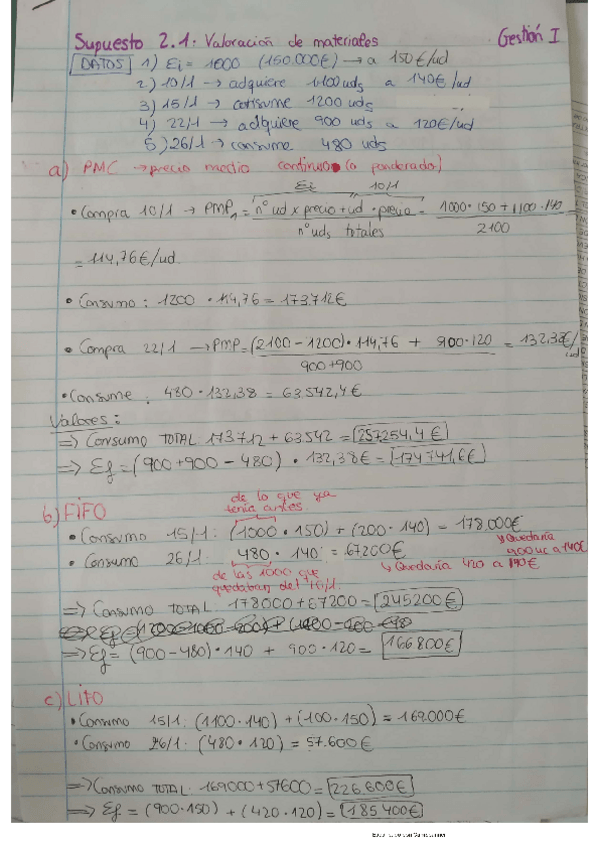 Supuesto 2.1. Valoración de materiales Gestión I
DATOS 1) Ei = 1000 (150.000€) → a 150€/ud
2) 10/1 → adquiere 1.100 uds a 140€/ud
3) 15/1 → consume 1200 uds
4) 22/1 → adquiere 900 uds a 120€/ud
5) 26/1 → consume 480 uds
a) PMC → precio medio continuo (o ponderado)
Ei 10/1
• Compra 10/1 → PMP₁ = nº ud x precio + ud · precio = 1000·150 + 1100·140
nº uds totales 2100
= 114,76€/ud
• Consumo: 1200 · 114,76 = 173.712€
• Compra 22/1 → PMP = (2100 - 1200) · 114,76 + 900·120 = 132,38€/ud
900+900
• Consume: 480 · 132,38 = 63.542,4€
Valores:
⇒ Consumo TOTAL 173712 + 63.542 = 237254,4€
⇒ Ef = (900+900-480) · 132,38€ = 174741,6€
de lo que ya
tenía antes
b) FIFO
• Consumo 15/1: (1000·150) + (200·140) = 178.000€
↘ Quedaría
900 uc a 140€
• Consumo 26/1: 480 · 140 = 67200€
↳ Quedaría 420 a 140€
de las 1000 que
quedaban del 10/1.
⇒ Consumo TOTAL: 178000 + 67200 = 245200€
⇒ Ef = (900-480)·140 + 900·120 = 166800€
c) LIFO
• Consumo 15/1: (1100·140) + (100·150) = 169.000€
• Consumo 26/1: (480·120) = 57.600€
⇒ Consumo TOTAL: 169000 + 57600 = 226.600€
⇒ Ef = (900·150) + (420·120) = 185.400€